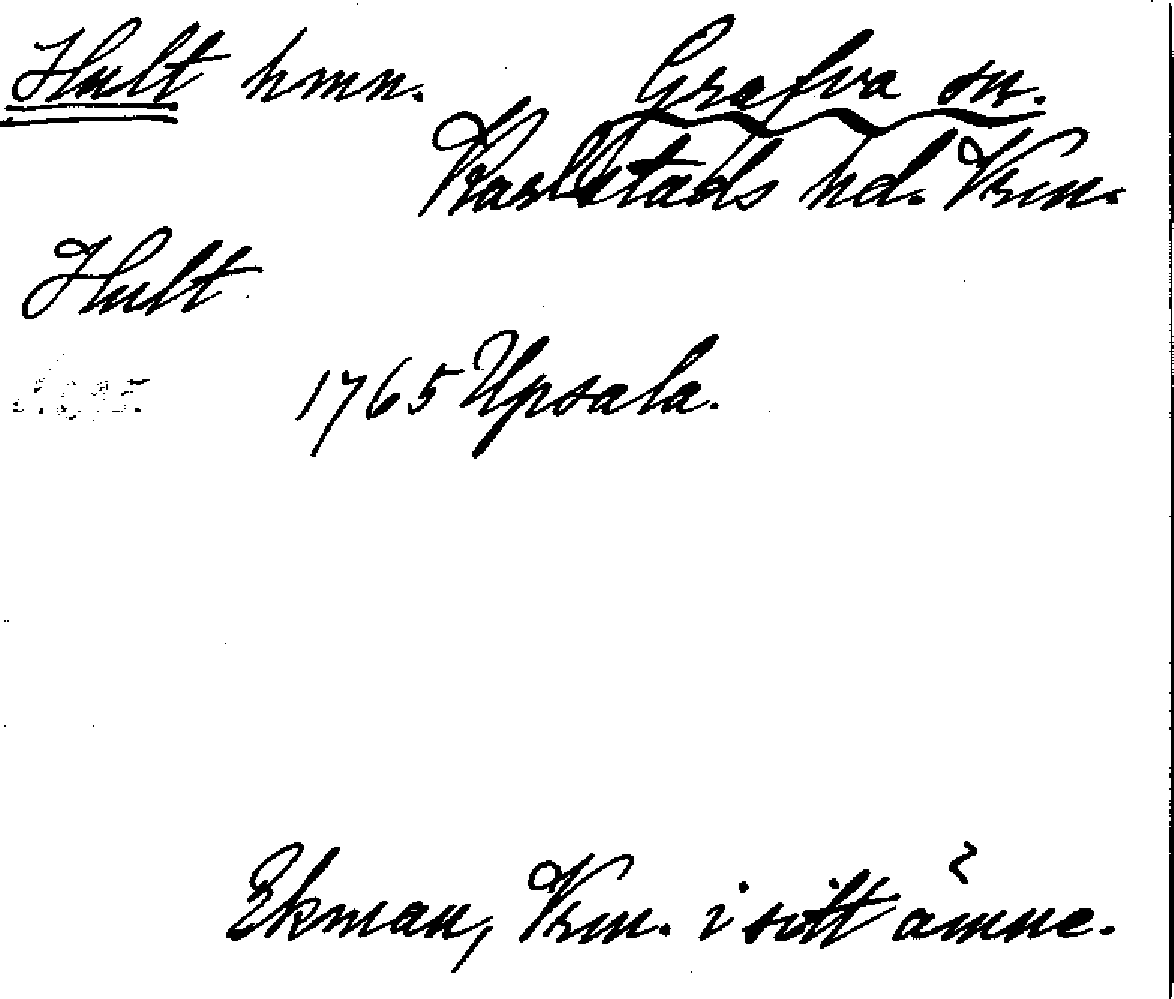 Hult hmn. Grafva sn.
Karlstads hd. Vrm.
Hult
1765 Upsala.
Ekman, Vrm. i sitt ämne.